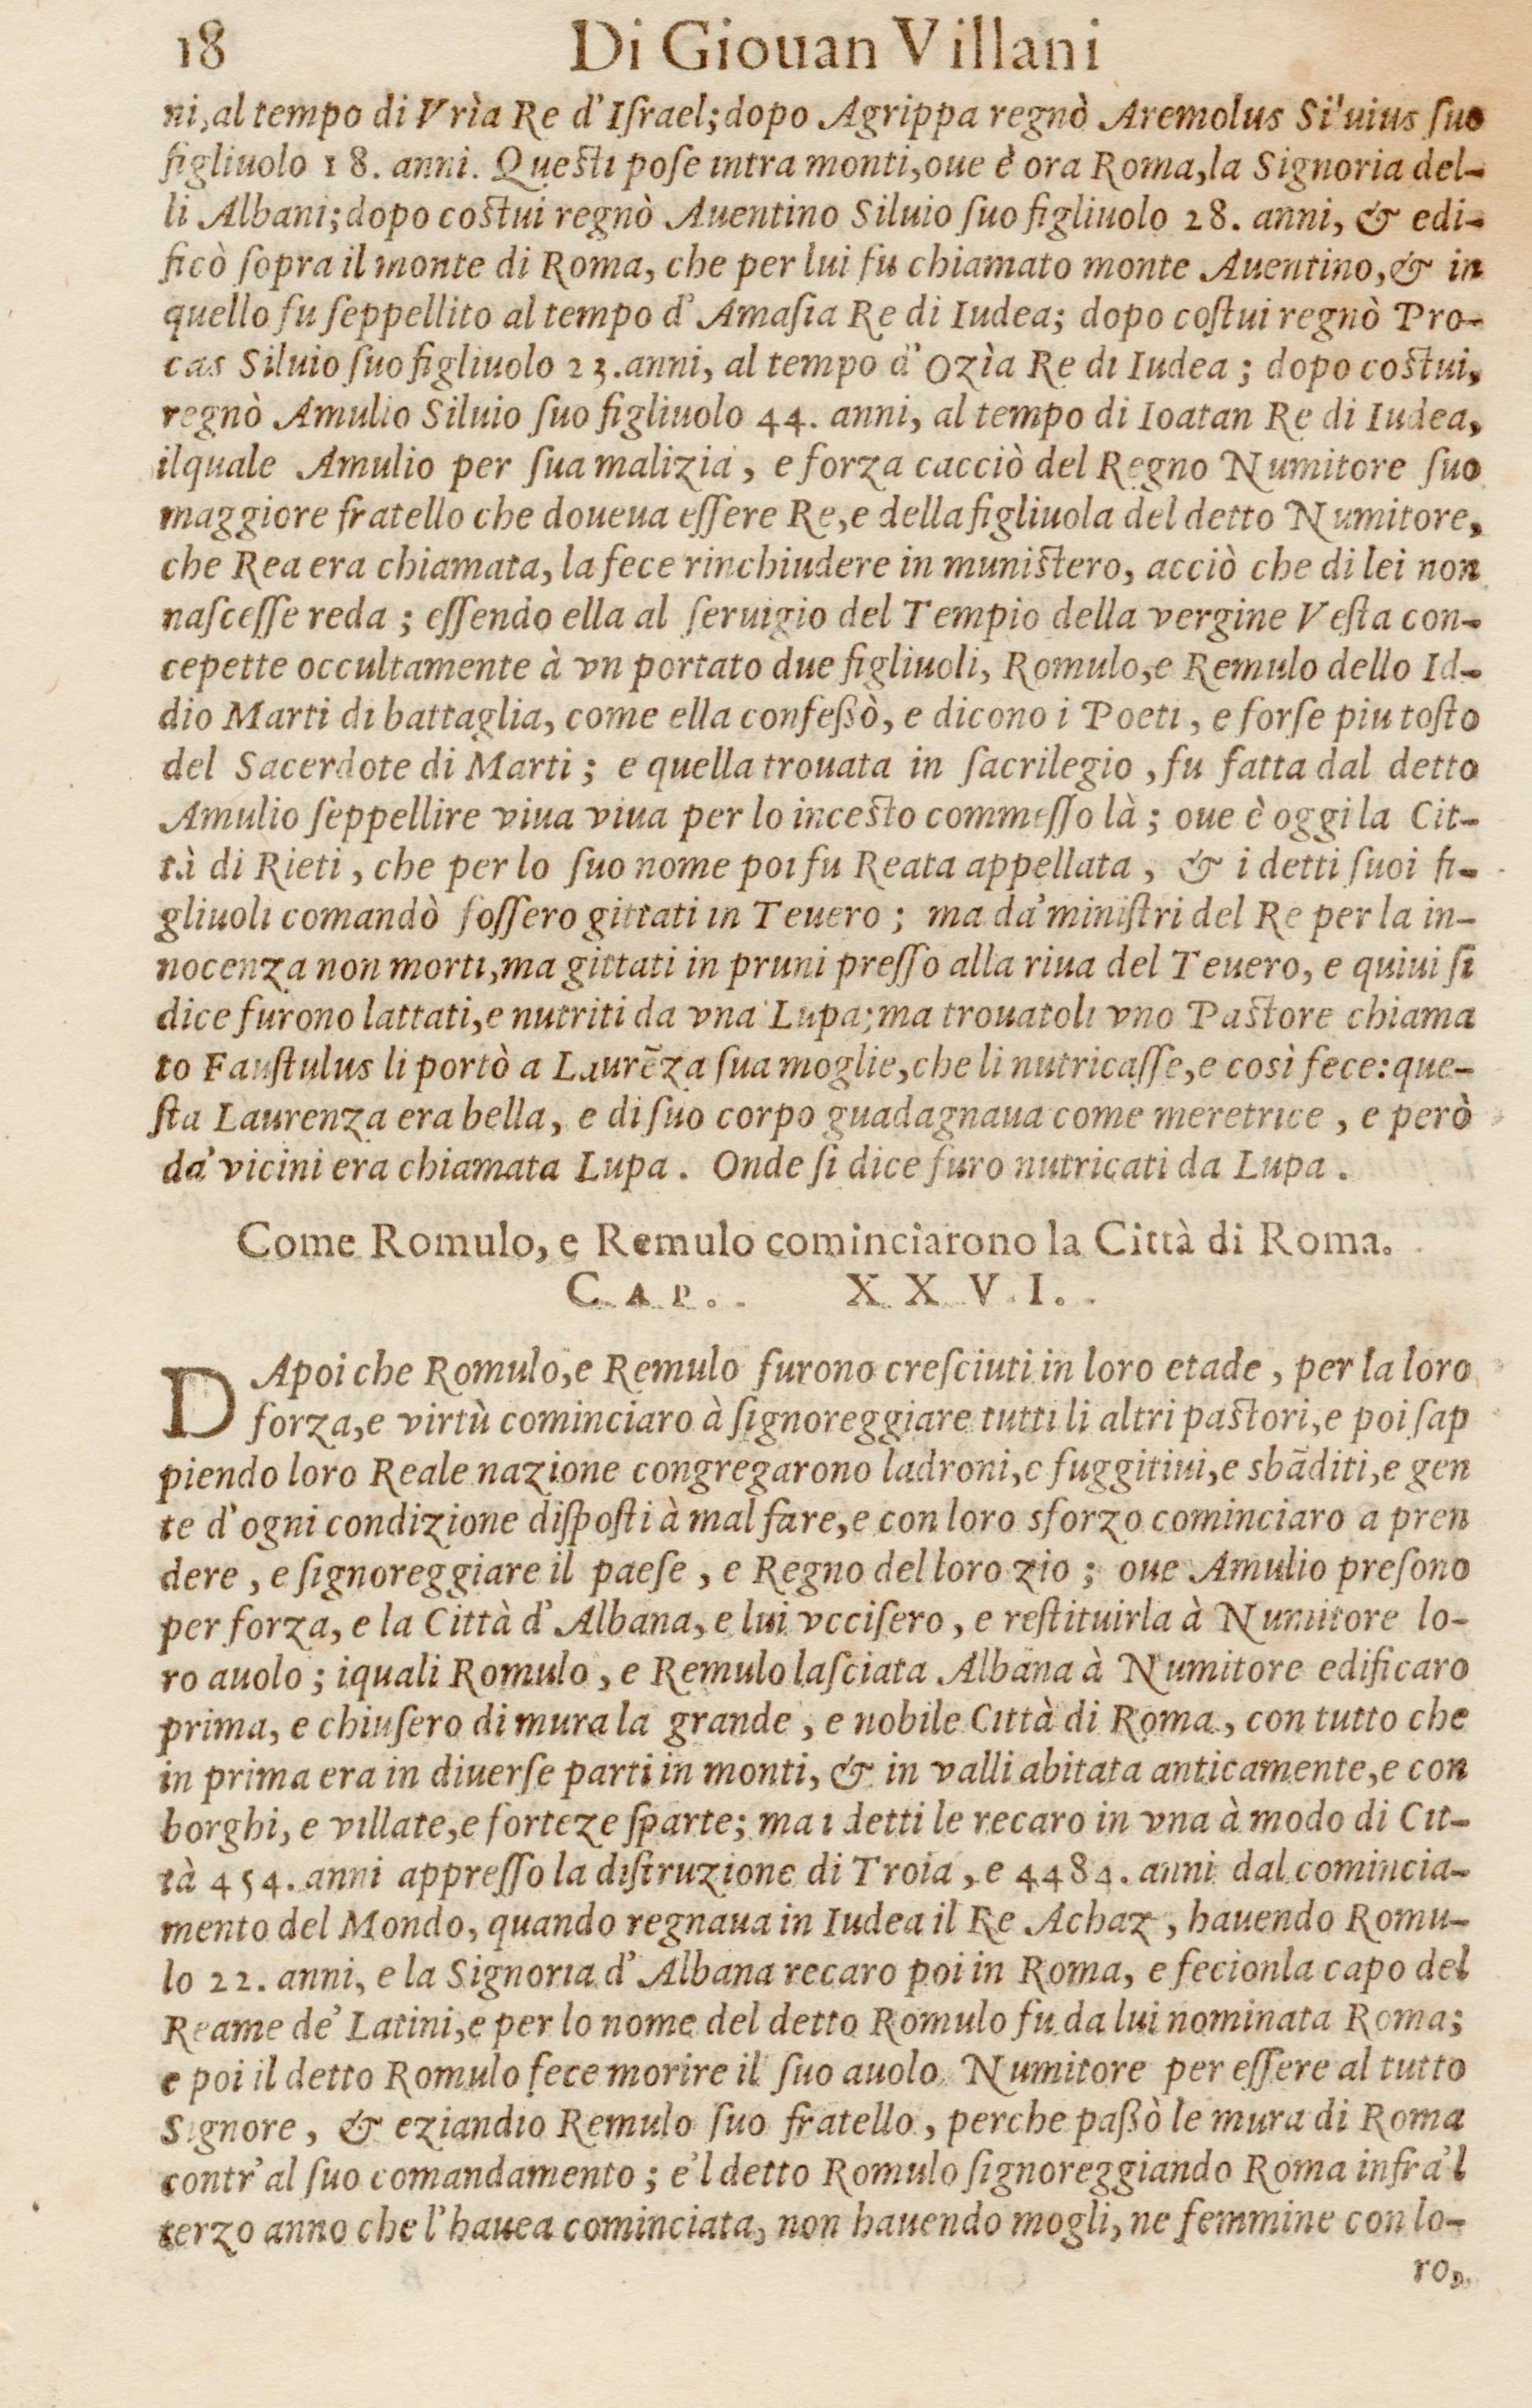 18 Di Giouan Villani
ni,al tempo di Vrìa Re d'Iſrael;dopo Agrippa regnò Aremolus Siluius ſuo
figliuolo 18. anni. Queſti poſe intra monti,oue è ora Roma,la Signoria del-
li Albani;dopo coſtui regnò Auentino Siluio ſuo figliuolo 28. anni, & edi-
ficò ſopra il monte di Roma, che per lui fu chiamato monte Auentino,& in
quello fu ſeppellito al tempo d'Amaſia Re di Iudea; dopo coſtui regnò Pro-
cas Siluio ſuo figliuolo 23.anni, al tempo d'Ozìa Re di Iudea ; dopo coſtui,
regnò Amulio Siluio ſuo figliuolo 44. anni, al tempo di Ioatan Re di Iudea,
ilquale Amulio per ſua malizia , e forza cacciò del Regno Numitore ſuo
maggiore fratello che doueua eſſere Re,e della figliuola del detto Numitore,
che Rea era chiamata, la fece rinchiudere in muniſtero, acciò che di lei non
naſceſſe reda ; eſſendo ella al ſeruigio del Tempio della vergine Veſta con-
cepette occultamente à vn portato due figliuoli, Romulo,e Remulo dello Id-
dio Marti di battaglia, come ella confeßò, e dicono i Poeti , e forſe piu toſto
del Sacerdote di Marti ; e quella trouata in ſacrilegio , fu fatta dal detto
Amulio ſeppellire viua viua per lo inceſto commeſſo là ; oue è oggi la Cit-
tà di Rieti , che per lo ſuo nome poi fu Reata appellata , & i detti ſuoi fi-
gliuoli comandò foſſero gittati in Teuero ; ma da'miniſtri del Re per la in-
nocenza non morti,ma gittati in pruni preſſo alla riua del Teuero, e quiui ſi
dice furono lattati,e nutriti da vna Lupa;ma trouatoli vno Paſtore chiama
to Fauſtulus li portò a Laurẽza ſua moglie,che li nutricaſſe,e così fece:que-
ſta Laurenza era bella, e di ſuo corpo guadagnaua come meretrice , e però
da'vicini era chiamata Lupa . Onde ſi dice furo nutricati da Lupa .
Come Romulo, e Remulo cominciarono la Città di Roma.
CAP. XXVI.
DApoi che Romulo,e Remulo furono creſciuti in loro etade , per la loro
forza,e virtù cominciaro à ſignoreggiare tutti li altri paſtori,e poi ſap
piendo loro Reale nazione congregarono ladroni,e fuggitiui,e sbãditi,e gen
te d'ogni condizione diſpoſti à mal fare,e con loro sforzo cominciaro a pren
dere , e ſignoreggiare il paeſe , e Regno del loro zio ; oue Amulio preſono
per forza, e la Città d'Albana, e lui vcciſero , e reſtituirla à Numitore lo-
ro auolo ; iquali Romulo , e Remulo laſciata Albana à Numitore edificaro
prima, e chiuſero di mura la grande , e nobile Città di Roma , con tutto che
in prima era in diuerſe parti in monti, & in valli abitata anticamente,e con
borghi, e villate,e forteze ſparte; ma i detti le recaro in vna à modo di Cit-
tà 454. anni appreſſo la diſtruzione di Troia , e 4484. anni dal comincia-
mento del Mondo, quando regnaua in Iudea il Re Achaz , hauendo Romu-
lo 22. anni, e la Signoria d'Albana recaro poi in Roma, e fecionla capo del
Reame de' Latini,e per lo nome del detto Romulo fu da lui nominata Roma;
e poi il detto Romulo fece morire il ſuo auolo Numitore per eſſere al tutto
Signore , & eziandio Remulo ſuo fratello , perche paßò le mura di Roma
contr'al ſuo comandamento ; e'l detto Romulo ſignoreggiando Roma infra'l
terzo anno che l'hauea cominciata, non hauendo mogli, ne femmine con lo-
ro,